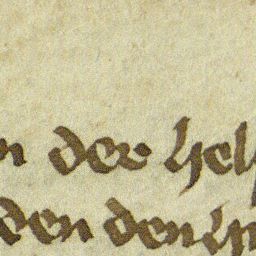 n der hel
den den